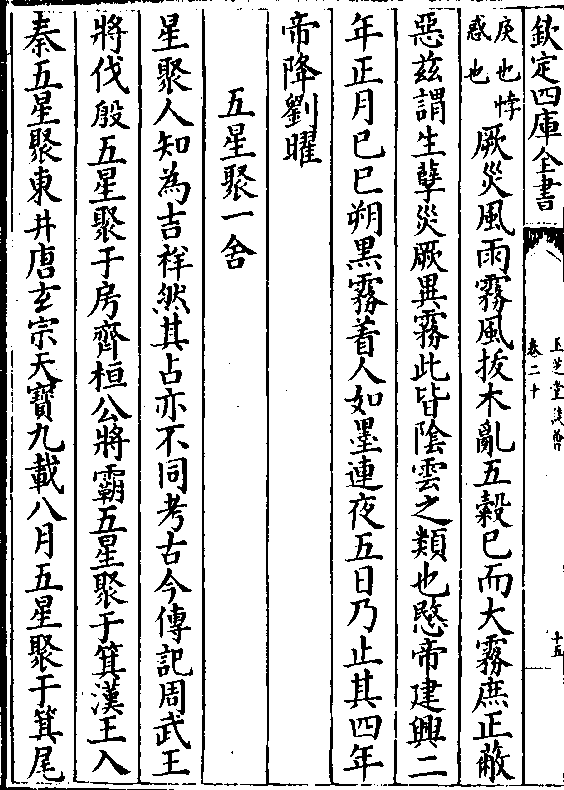 欽定四庫全書
玉芝堂談薈
卷二十
十五
戾也悖
惑也
厥災風雨霧風拔木亂五穀已而大霧庶正蔽
惡茲謂生孽災厥異霧此皆陰雲之類也愍帝建興二
年正月巳巳朔黑霧着人如墨連夜五日乃止其四年
帝降劉曜
五星聚一舍
星聚人知為吉祥然其占亦不同考古今傳記周武王
將伐殷五星聚于房齊桓公將霸五星聚于箕漢王入
秦五星聚東井唐玄宗天寶九載八月五星聚于箕尾